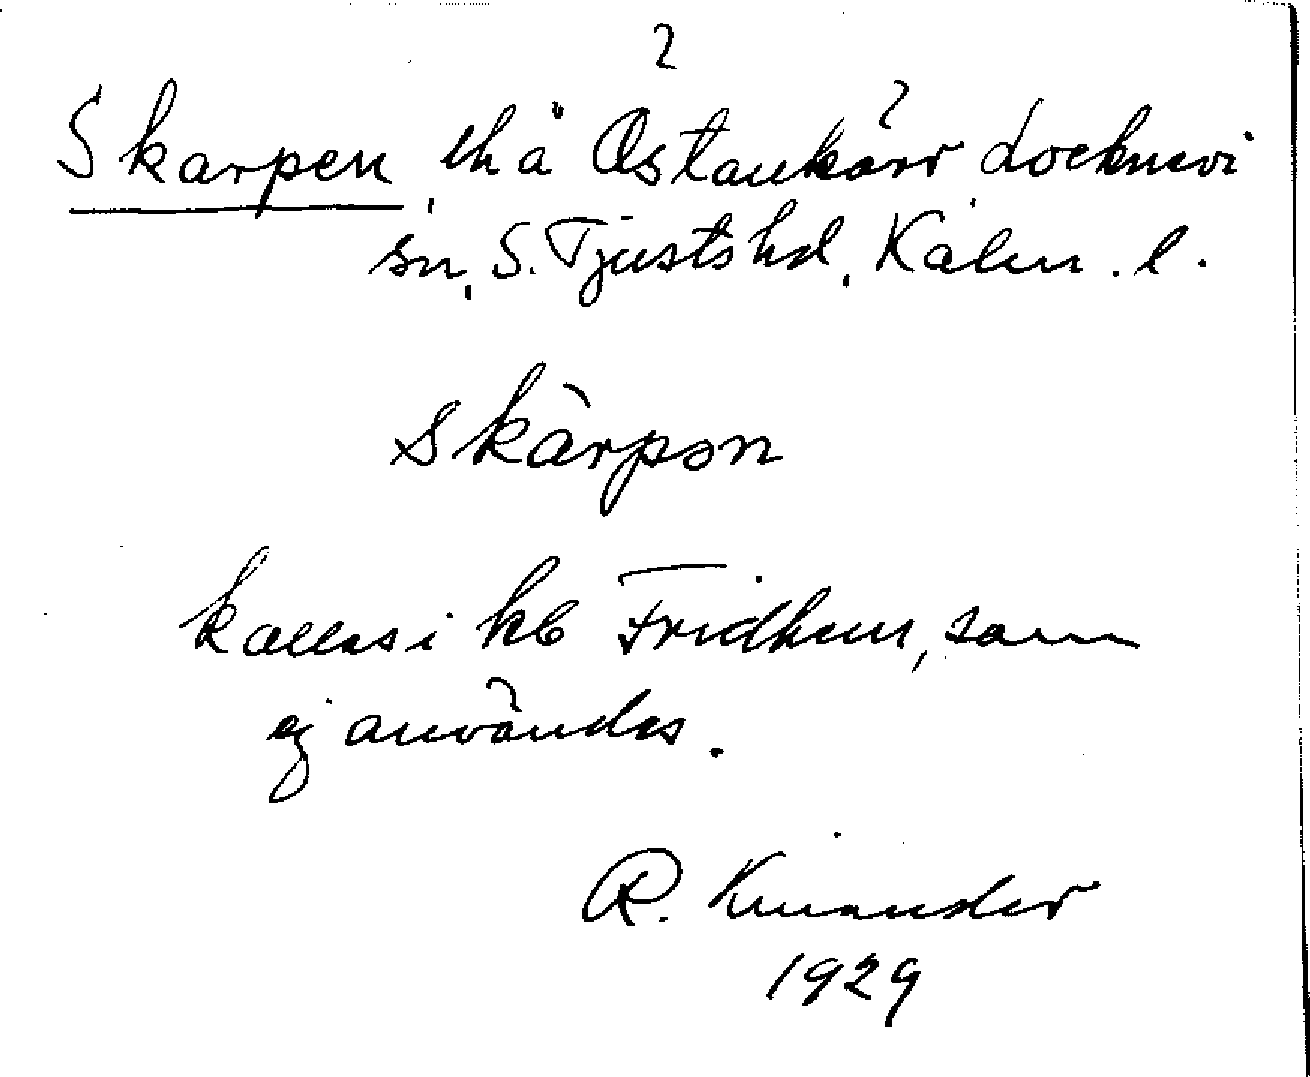 2
Skarpen, lh å Östankärr Locknevi
sn, S. Tjusts hd, Kalm. l.
skàrpən
kallas i kb Fridhem, som
ej användes.
R. Kinander
1929